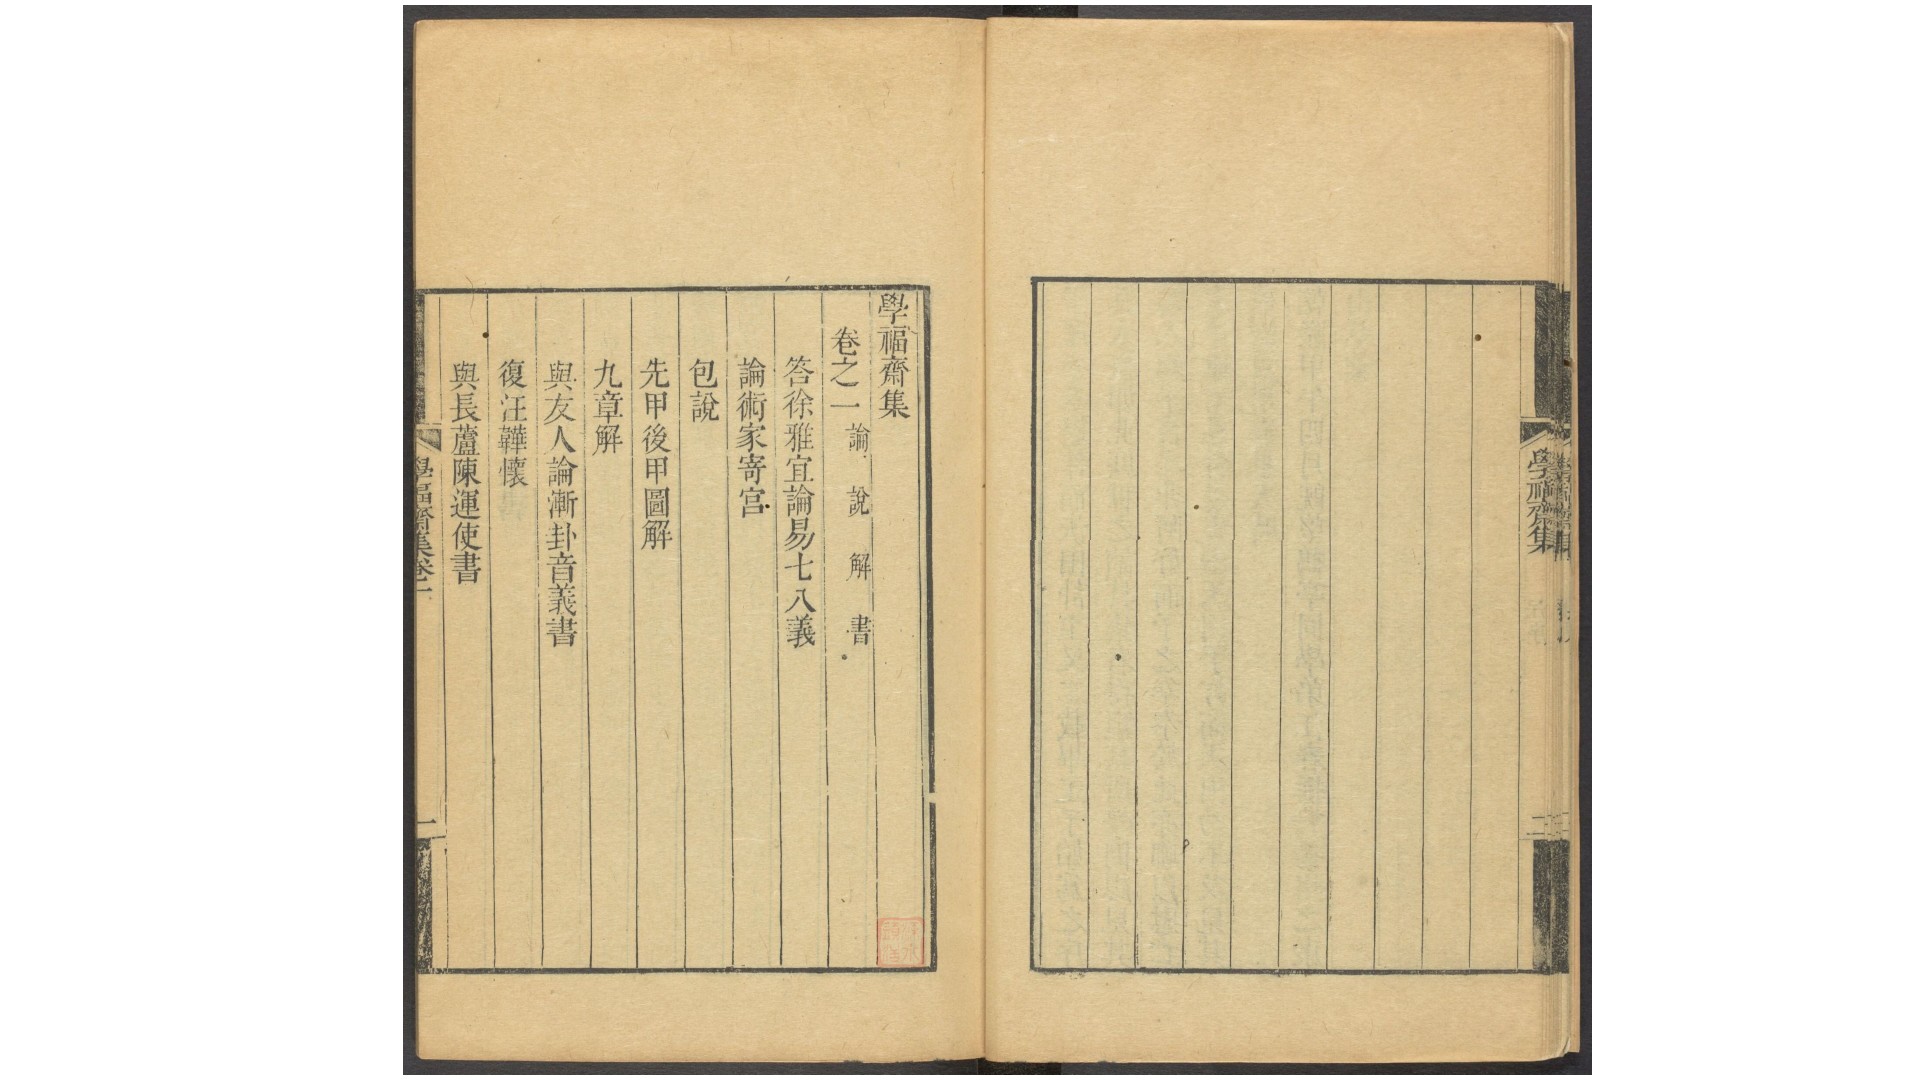 學福齋集
二
學福齋集
卷之一 論 說 解 書
答徐雅宜論易七八義
論術家寄宮
包說
先甲後甲圖解
九章解
與友人論漸卦音義書
復汪韡懷
與長蘆陳運使書
學福齋集卷一
一